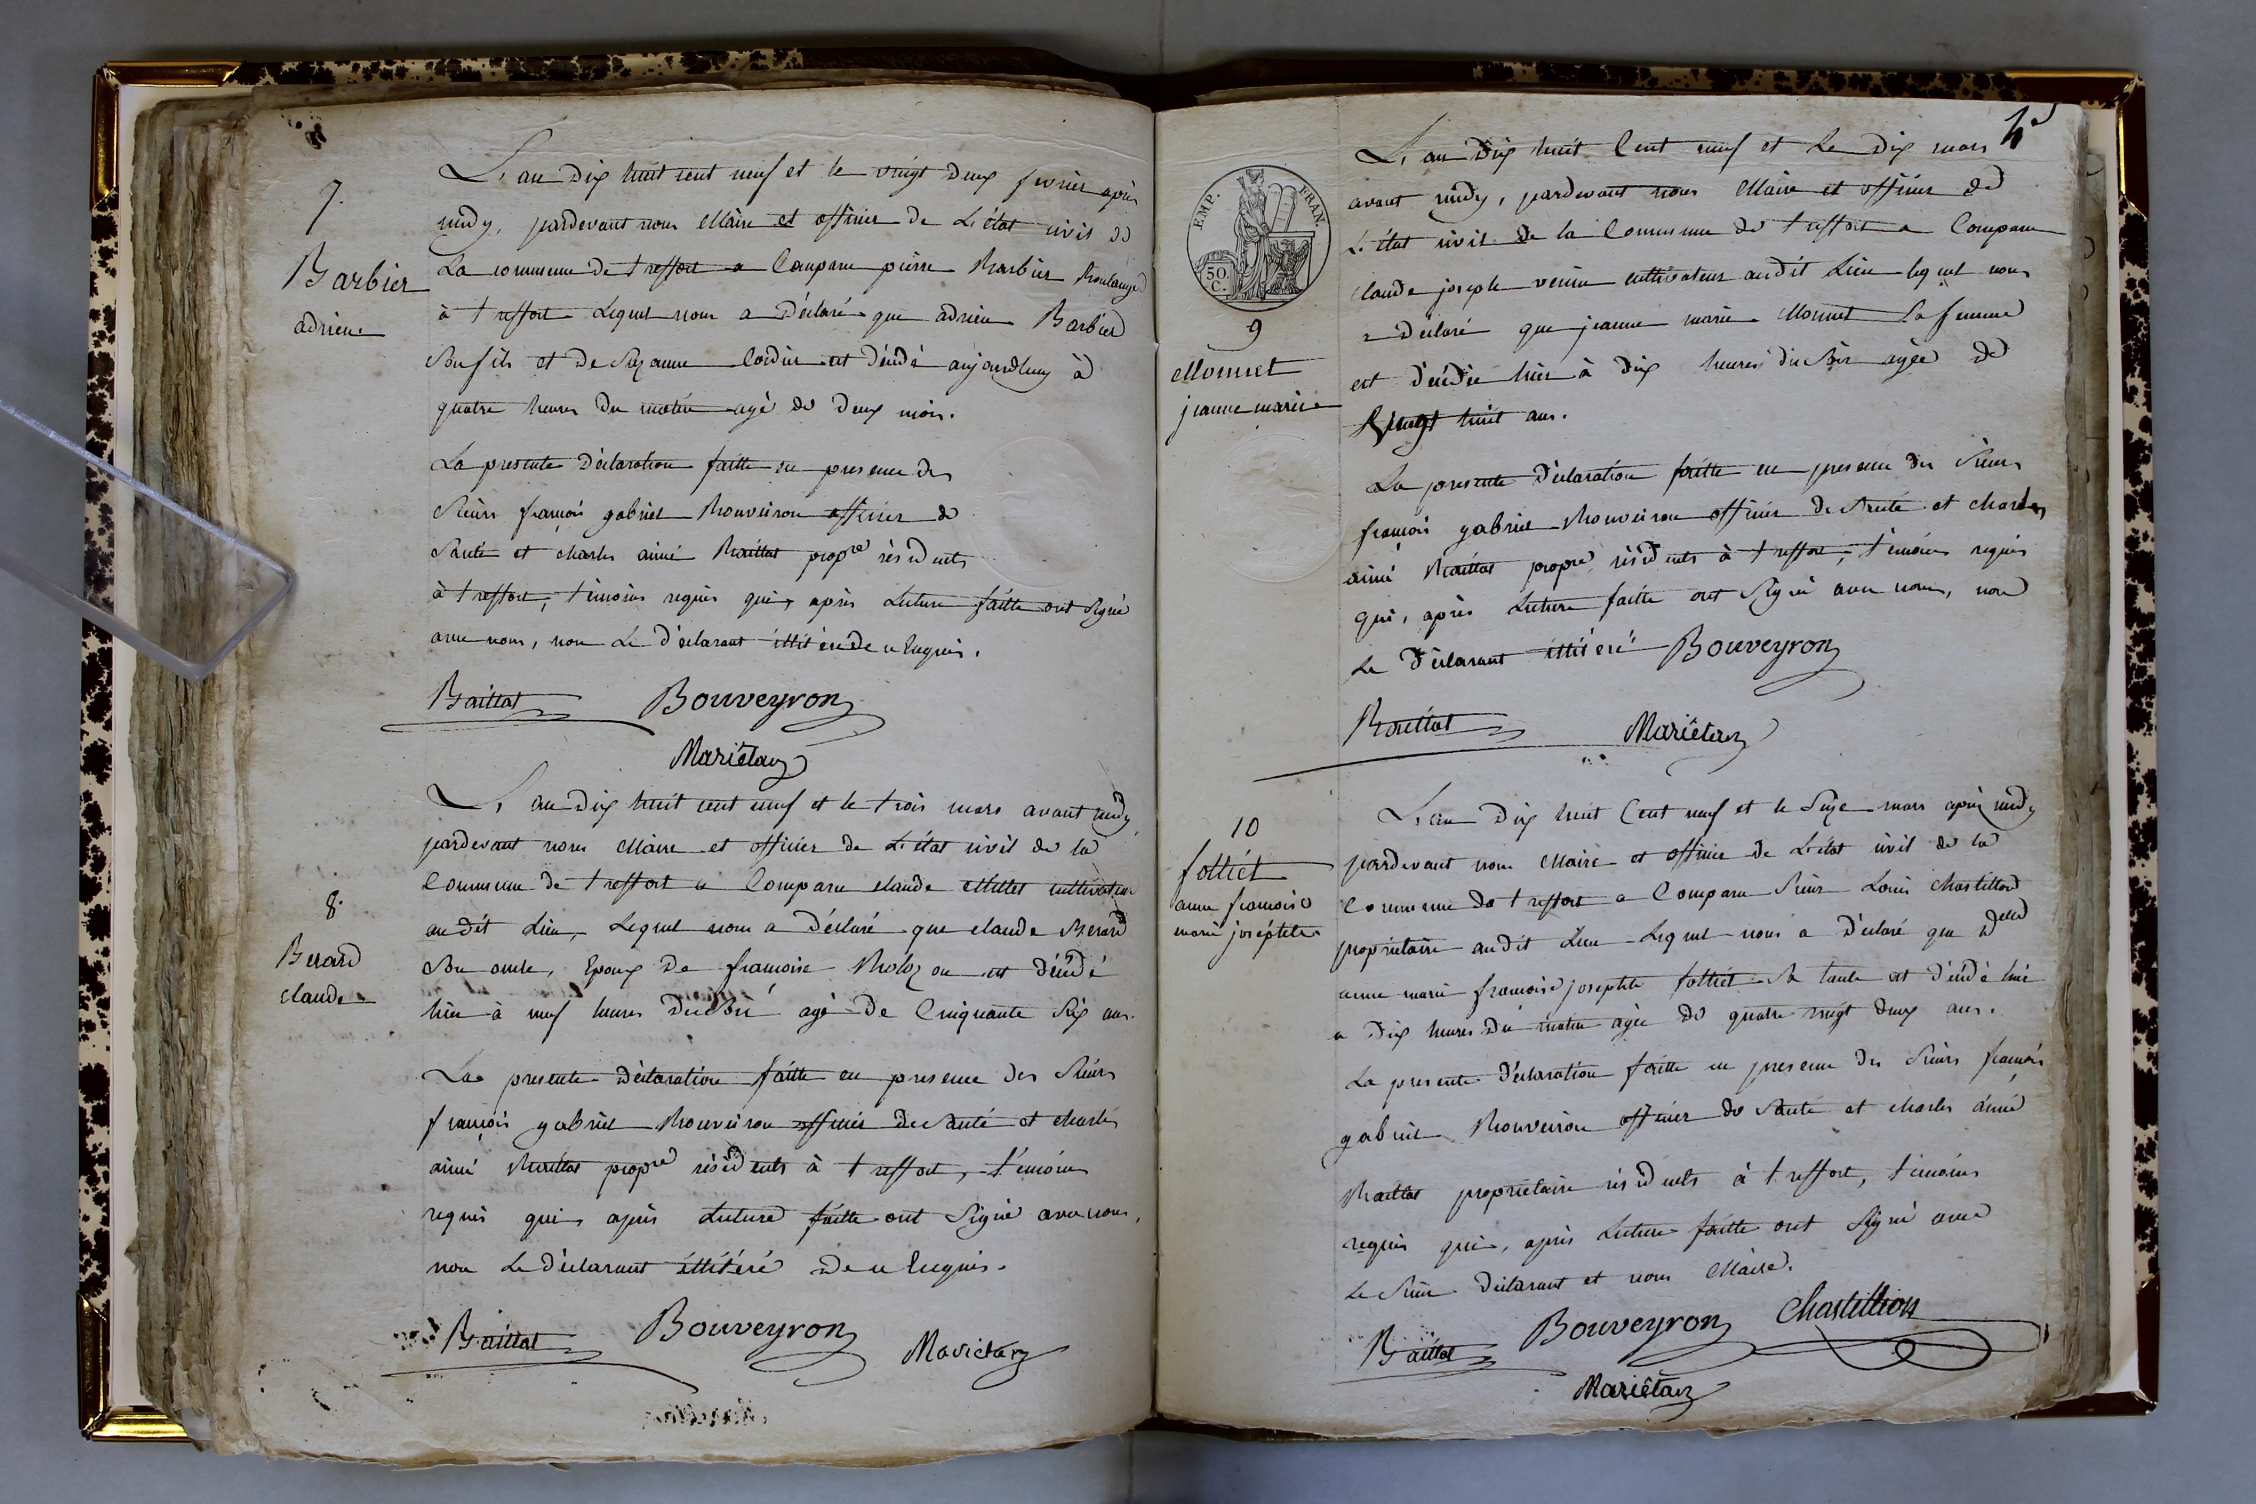 7.
Barbier
adrien
L'an dix huit cent neuf et le vingt deux fevrier après
midy, pardevant nous Maire et officier de L'état civil de
La commune de treffort a Comparu pierre Barbier Boulanger
à treffort Lequel nous a déclaré que adrien Barbier
Son fils et de Suzanne Cordier est décédé aujourdhuy à
quatre heures du matin agé de deux mois.
La presente déclaration faitte en presence des
Sieurs françois gabriel Bouveiron officier de
Santé et charles aimé Baillat propre résidents
à treffort, témoins requis qui, après Lecture faitte ont Signé
avec nous, non Le déclarant illitéré de ce Enquis.
Baillat Bouveyron
Mariétan
8.
Berard
claude
L'an dix huit cent neuf et le trois mars avant midy
pardevant nous Maire et officier de L'état civil de la
Commune de treffort a Comparu claude Millet cultivateur
audit Lieu, Lequel nous a déclaré que claude Berard
Son oncle, Epoux de francoise Bolozon est décédé
hier à neuf heures du Soir agé de Cinquante Six ans.
La presente déclaration faitte en presence des Sieurs
françois gabriel Bouveiron officier de Santé et charles
aimé Baillat propre résidents à treffort, témoins
requis qui, après Lecture faitte ont Signé avec nous,
non Le déclarant illitéré De ce Enquis.
Baillat Bouveyron Mariétan
EMP. FRAN.
50 C.
9
Monnet
jeanne marie
L'an dix huit Cent neuf et Le dix mars
avant midy, pardevant nous Maire et officier de
L'état civil de la Commune de treffort a Comparu
claude joseph cultivateur audit Lieu lequel nous
a déclaré que jeanne marie Monnet Sa femme
est décédée hier à dix heures du Soir agée de
Vingt huit ans.
La presente déclaration faitte en presence des Sieurs
françois gabriel Bouveiron officier de Santé et charles
aimé Baillat propre résidents à treffort, témoins requis
qui, après Lecture faitte ont Signé avec nous, non
Le déclarant illitéré Bouveyron
Baillat Mariétan
10
folliet
anne francoise
marie joséphte
L'an dix huit Cent neuf et le Seize mars après midy
pardevant nous Maire et officier de L'état civil de la
Commune de treffort a Comparu Sieur Louis Chastillon
propriétaire audit Lieu Lequel nous a déclaré que
anne marie francoise josephte folliet Sa tante est décédé hier
a dix heures du matin agée de quatre vingt deux ans.
La presente déclaration faitte en presence des Sieurs françois
gabriel Bouveiron officier de Santé et charles aimé
Baillat propriétaire résidents à treffort, témoins
requis qui, après Lecture faitte ont Signé avec
Le Sieur déclarant et nous Maire.
Baillat Bouveyron Chastillion
Mariétan